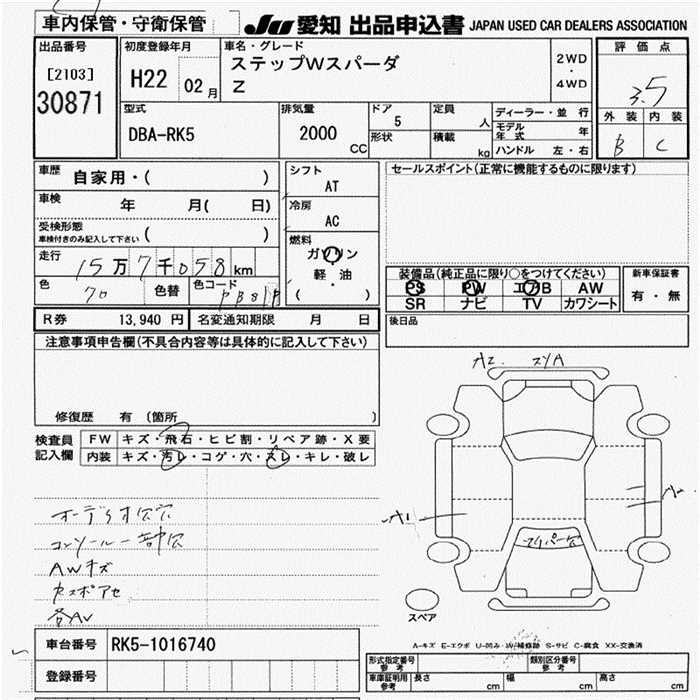 車内保管・守衛保管
JU 愛知 出品申込書 JAPAN USED CAR DEALERS ASSOCIATION
出品番号
[2103]
30871
初度登録年月
H22 02月
車名・グレード
ステップWスパーダ
Z
2WD
・
4WD
評価点
3.5
外装 内装
B C
型式
DBA-RK5
排気量
2000
CC
ドア
5
形状
定員
人
積載
kg
ディーラー・並行
モデル年式 年
ハンドル 左・右
車歴 自家用・( )
車検 年 月( 日)
受検形態
車検付きのみ記入して下さい ( )
走行 15万7千058km
色 色替 色コード
シフト
AT
冷房
AC
燃料
ガソリン
軽・油
( )
セールスポイント(正常に機能するものに限ります)
装備品(純正品に限り○をつけてください)
PS PW エアB AW
SR ナビ TV カワシート
新車保証書
有・無
後日品
R券 13,940円 名変通知期限 月 日
注意事項申告欄(不具合内容等は具体的に記入して下さい)
修復歴 有 (箇所 )
検査員
記入欄
FW キズ・飛石・ヒビ割・リペア跡・X要
内装 キズ・汚レ・コゲ・穴・スレ・キレ・破レ
オーディオ欠穴
コンソール一部欠
AWキズ
各AU
A2
A1
スペア
A-キズ E-エクボ U-凹み W-補修跡 S-サビ C-腐食 XX-交換済
車台番号 RK5-1016740
登録番号
形式指定番号
参考
類別区分番号
参考
車庫証明用
参考
長さ cm 幅 cm 高さ cm